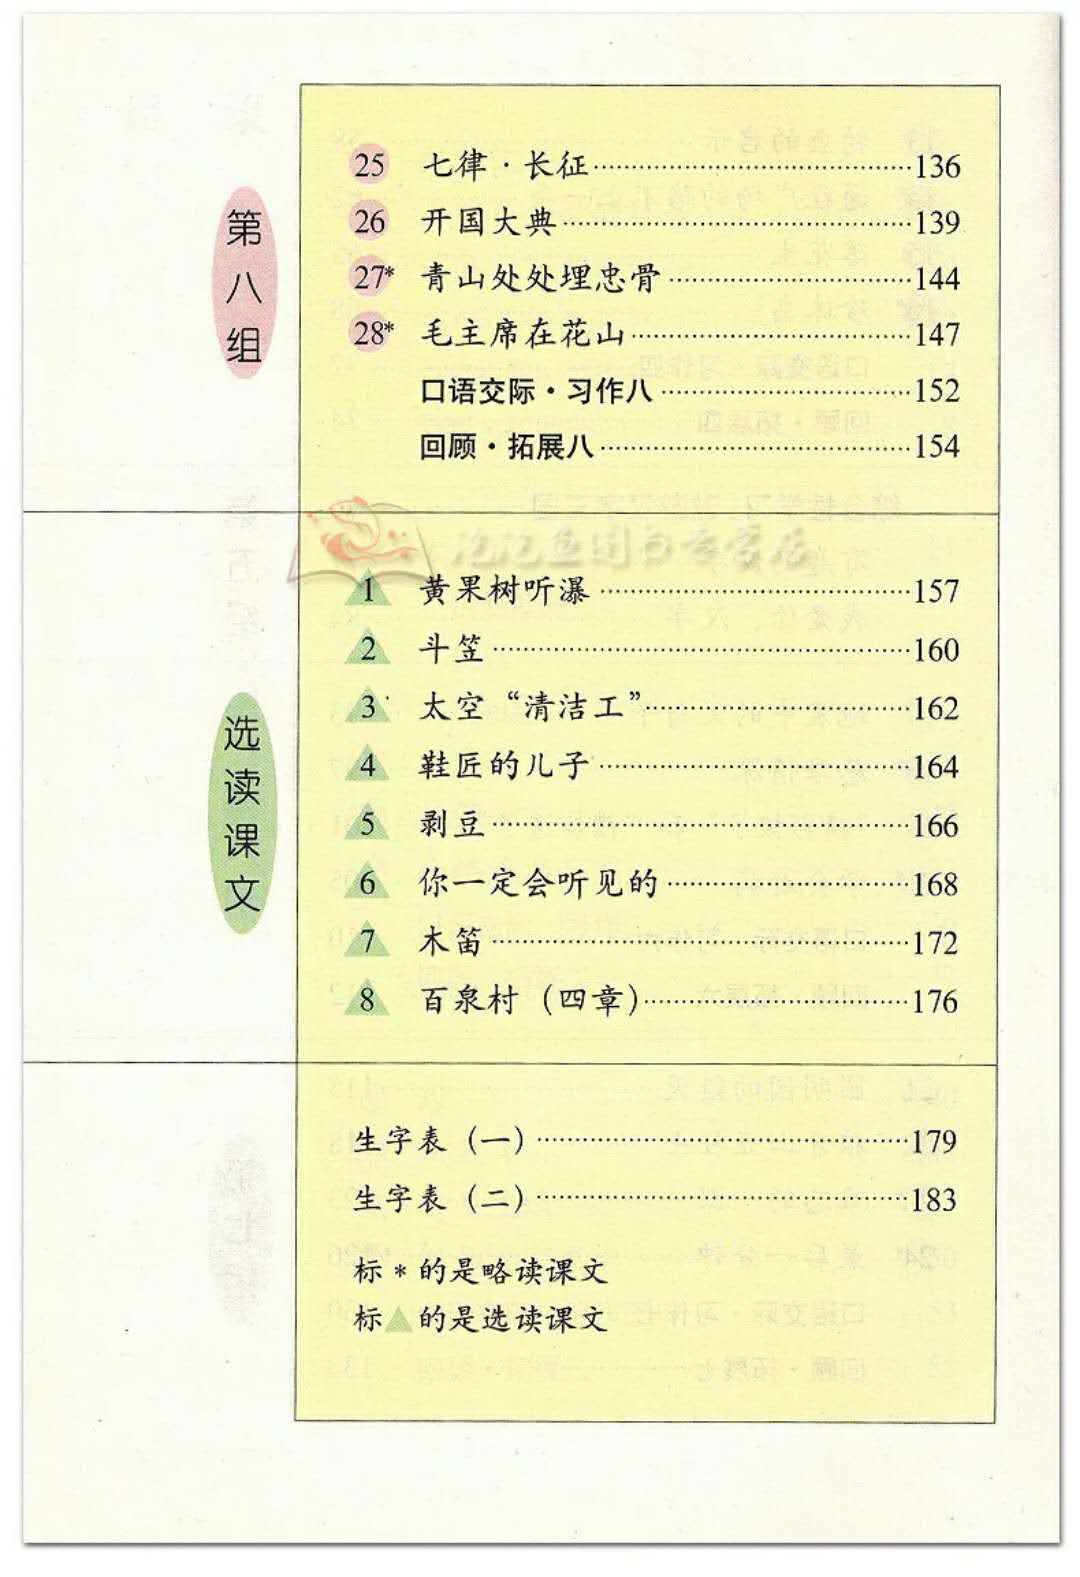 第八组
25 七律·长征……136
26 开国大典……139
27* 青山处处埋忠骨……144
28* 毛主席在花山……147
口语交际·习作八……152
回顾·拓展八……154
泡泡鱼图书专营店
选读课文
1 黄果树听瀑……157
2 斗笠……160
3 太空“清洁工”……162
4 鞋匠的儿子……164
5 剥豆……166
6 你一定会听见的……168
7 木笛……172
8 百泉村（四章）……176
生字表（一）……179
生字表（二）……183
标*的是略读课文
标▲的是选读课文